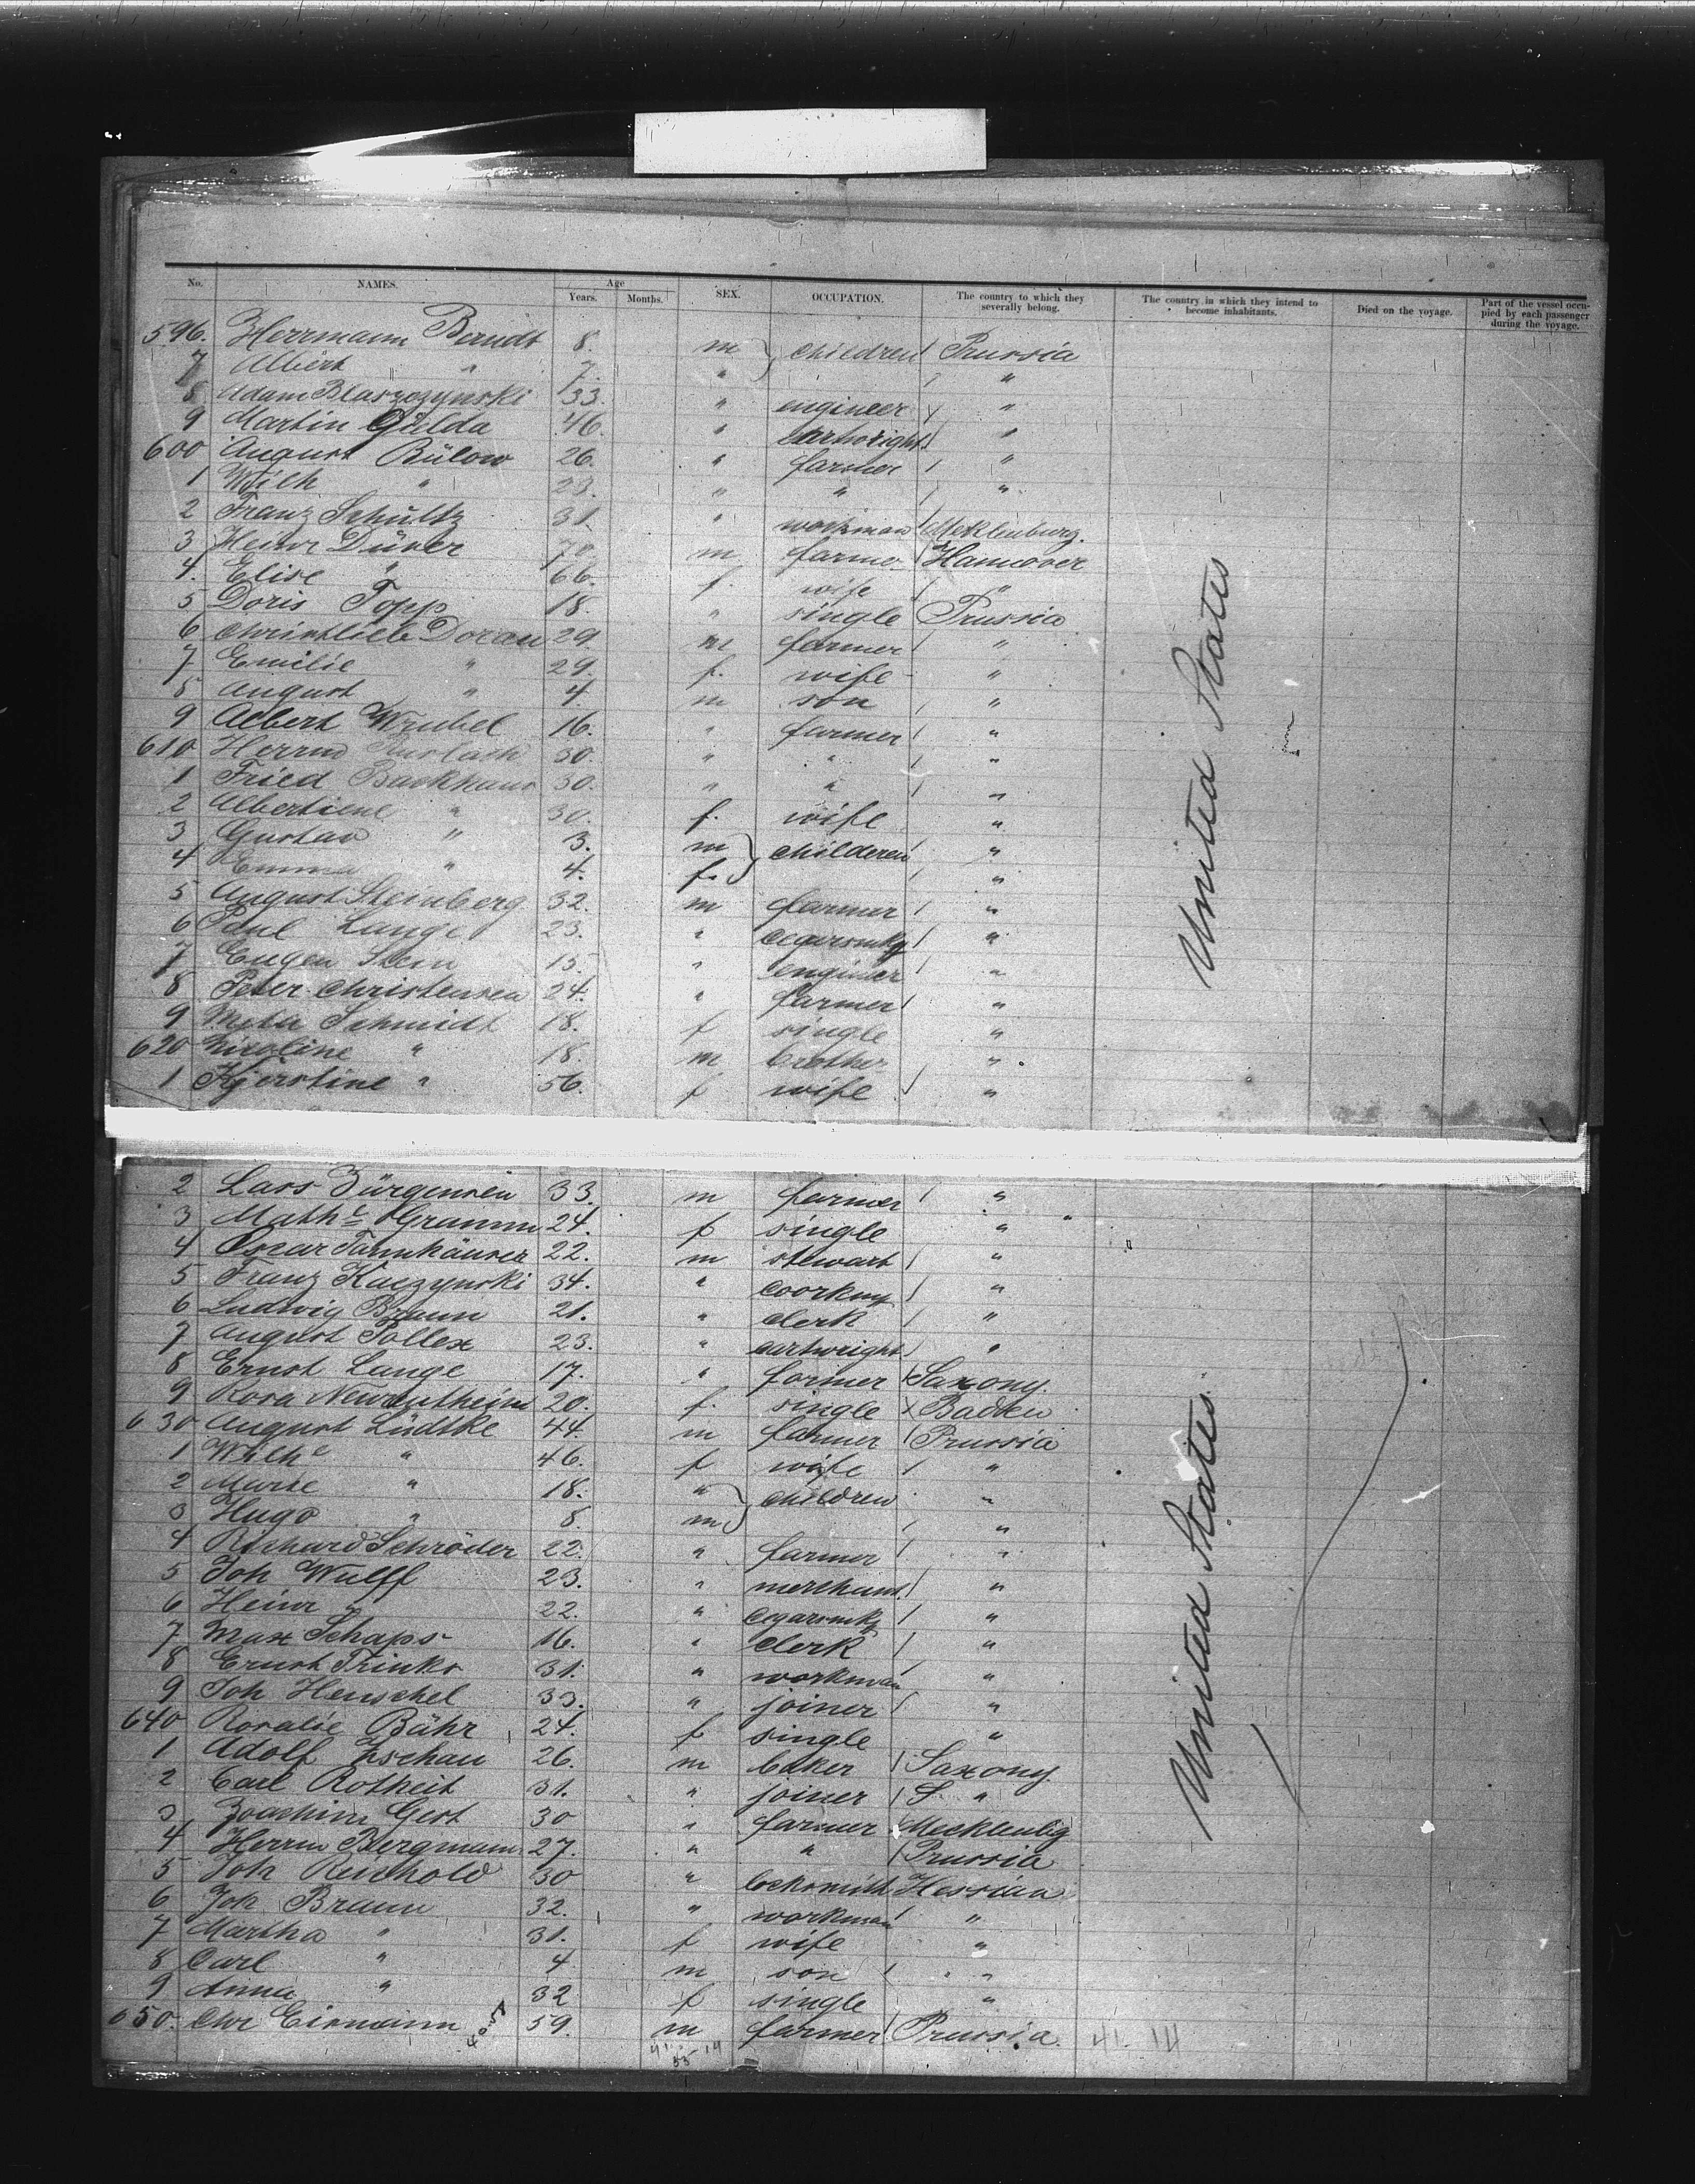 No. NAMES. Age Years. Months. SEX. OCCUPATION. The country to which they severally belong. The country in which they intend to become inhabitants. Died on the voyage. Part of the vessel occupied by each passenger during the voyage.
596. Herrmann Berndt 8. m } children / Prussia
7 Albert " 7. " } / "
8 Adam Blaszozynski 33. " engineer / "
9 Martin Gülda 46. " cartwright / "
600 August Bülow 26. " farmer / "
1 Wilh " 23. " " / "
2 Franz Schültz 31. " workman / Mecklenburg.
3 Heinr Düver 70. m farmer / Hannover
4. Elise " 66. f. wife / "
5 Doris Topp 18. " single Prussia
6 Christlieb Dorau 29. m farmer / "
7 Emilie " 29. f. wife "
8 August " 4. m son / "
9 Albert Wrubel 16. " farmer / "
610 Herrm 30. " " / "
1 Fried Backhaus 30. " " / "
2 Albertiene " 30. f. wife "
3 Gustav " 3. m } childeren / "
4 Emma " 4. f. } "
5 August Steinberg 32. m farmer / "
6 Paul Lange 23. " / "
7 Eugen Stein 15. " engineer / "
8 Peter Christensen 24. " farmer / "
9 Meta Schmidt 18. f single "
620 Nicoline " 18. m brother "
1 Kjerstine " 56. f wife / "
2 Lars Jürgensen 33. m farmer / "
3 Mathe Gramm 24. f single "
4 Oscar Tannhäuser 22. m stewart / "
5 Franz Kaczynski 34. " / "
6 Ludwig Braun 21. " clerk / "
7 August Pollex 23. " cartwright / "
8 Ernst Lange 17. " farmer Saxony.
9 Rosa 20. f. single x Baden
630 August Lüdtke 44. m farmer / Prussia
1 Wilhe " 46. f wife / "
2 Marie " 18. " } children "
3 Hugo " 8. m } / "
4 Richard Schröder 22. " farmer / "
5 Joh Wulff 23. " merchant / "
6 Heinr " 22. " / "
7 Max Schaps 16. " clerk / "
8 Ernst Trinks 31. " workman / "
9 Joh Henschel 33. " joiner / "
640 Rosalie Bähr 24. f single "
1 Adolf Zschau 26. m baker / Saxony
2 Carl Rotheit 31. " joiner / S. "
3 Joachim Gest 30 " farmer Mecklenbg
4 Herrm Bergmann 27. " " / Prussia
5 Joh Reichold 30 " locksmith Hessia
6 Joh Braun 32. " workman / "
7 Martha " 31. f wife "
8 Carl " 4 m son / "
9 Anna " 32 f single "
650. Chr Eismann 59. m farmer / Prussia. 41. 14
United States
United States